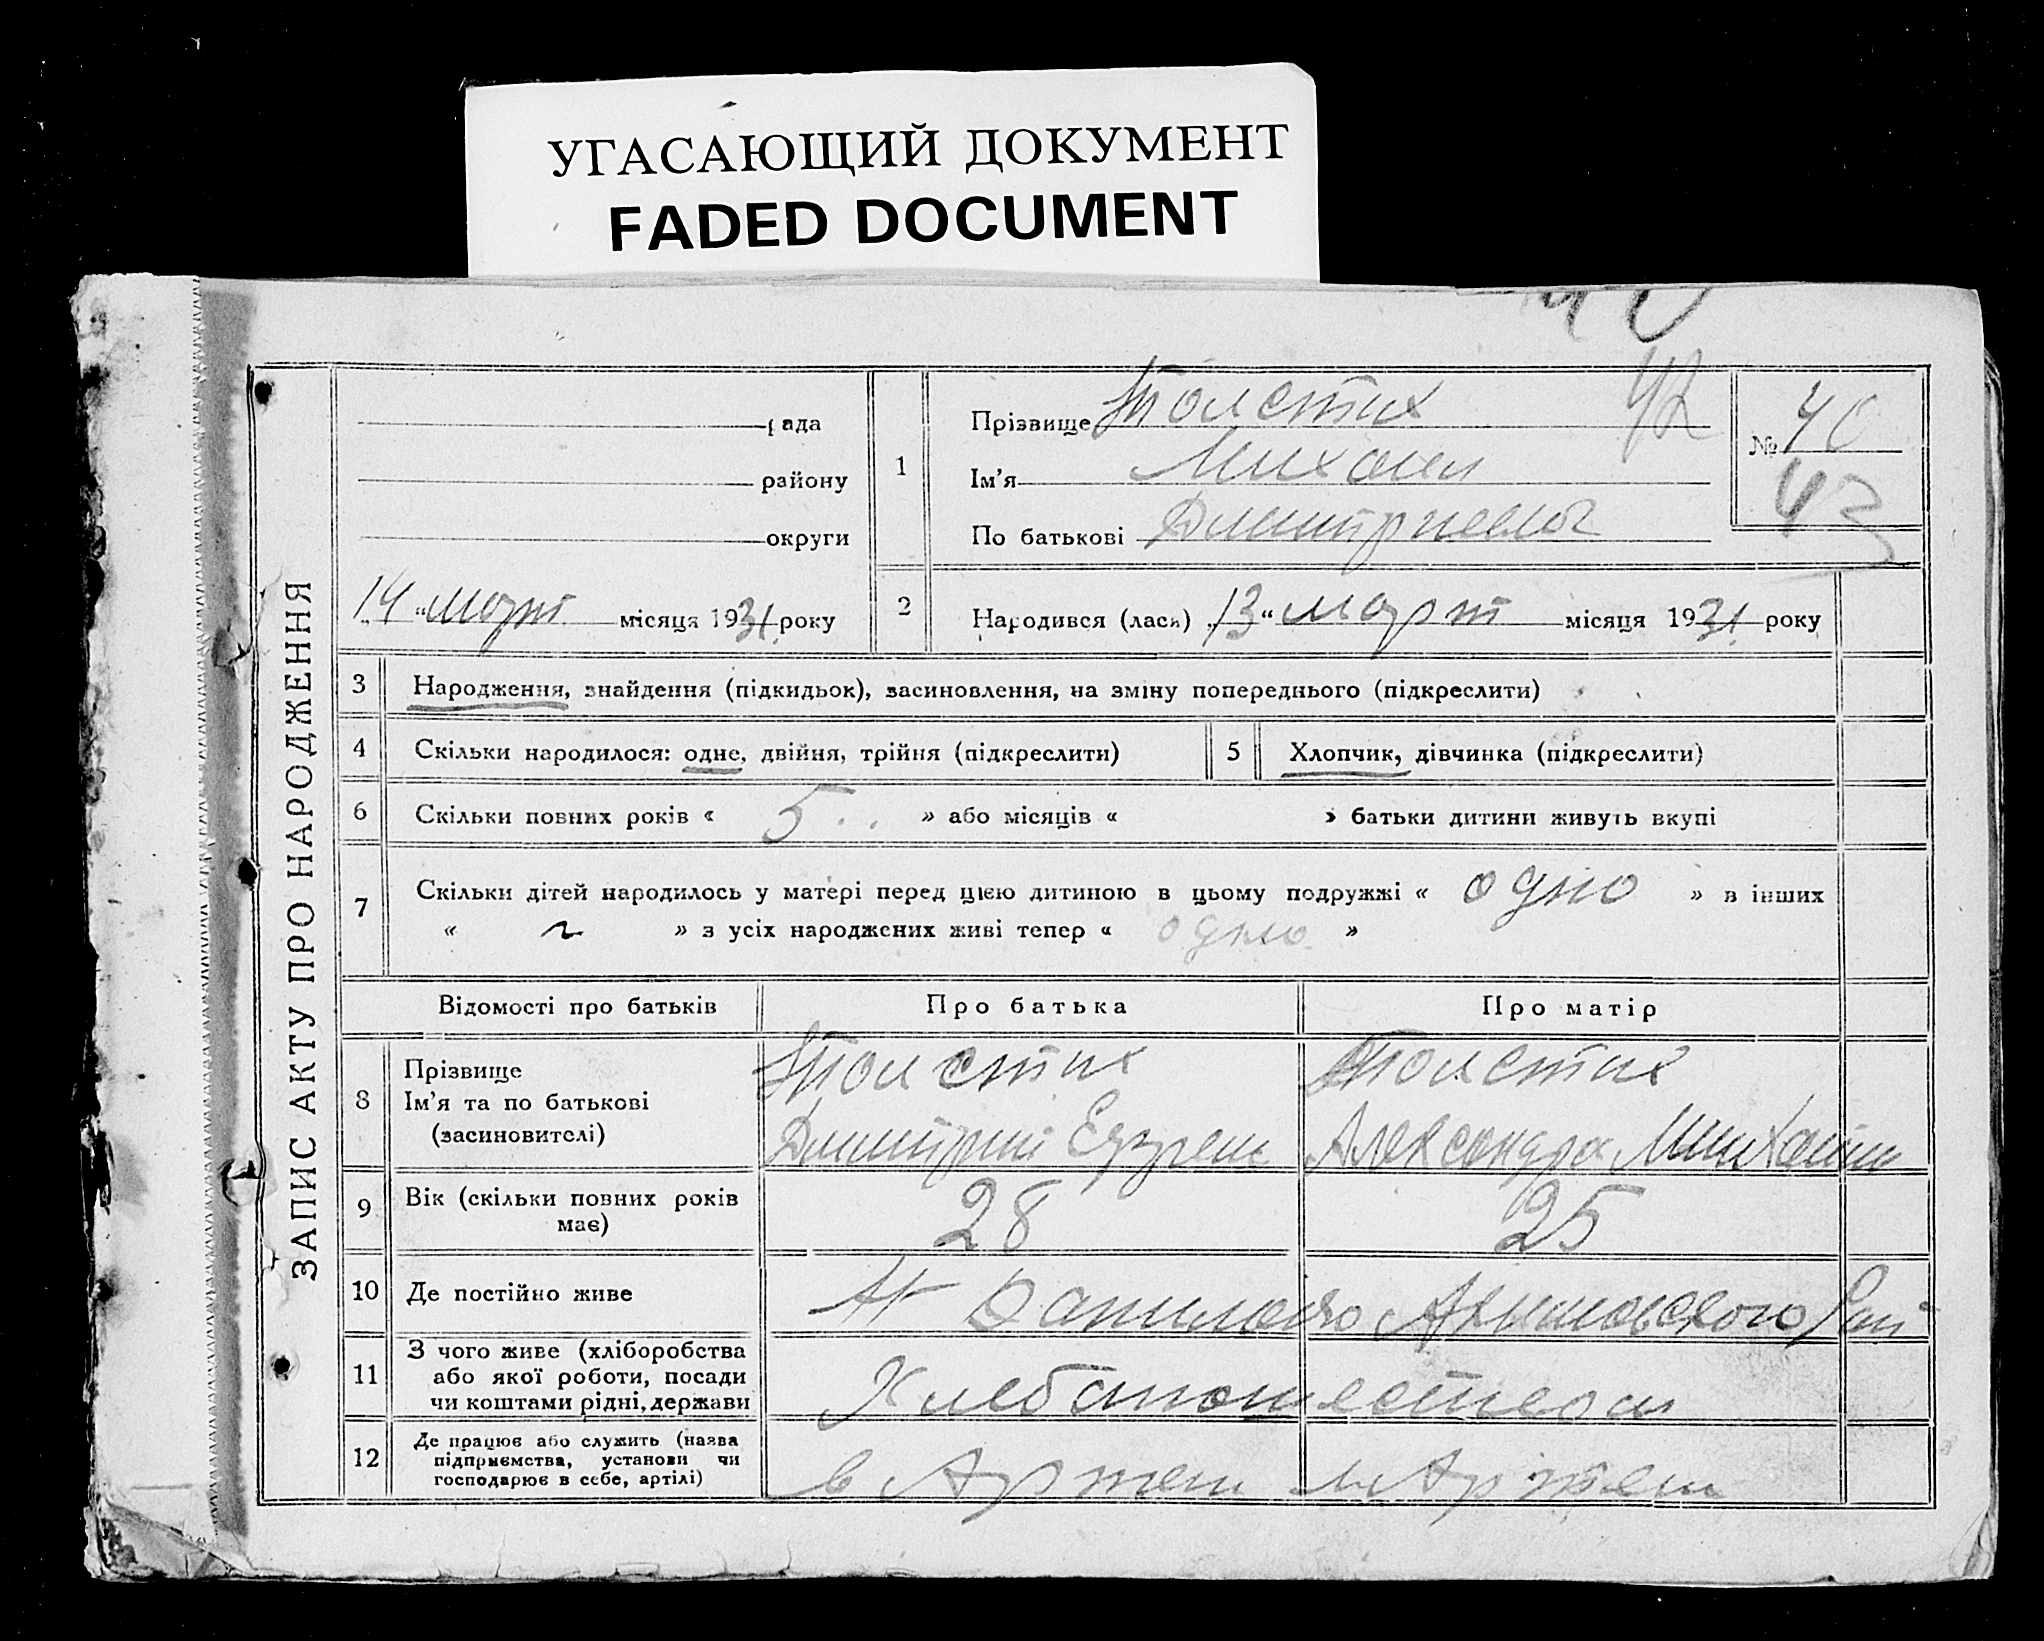 УГАСАЮЩИЙ ДОКУМЕНТ
FADED DOCUMENT
42
ЗАПИС АКТУ ПРО НАРОДЖЕННЯ
рада
району
округи
„14“ март місяця 1931 року
1
Прізвище Толстих
Ім'я Михаил
По батькові Дмитриевич
№ 40
43
2
Народився (лася) „13“ март місяця 1931 року
3 Народження, знайдення (підкидьок), засиновлення, на зміну попереднього (підкреслити)
4 Скільки народилося: одне, двійня, трійня (підкреслити)
5 Хлопчик, дівчинка (підкреслити)
6 Скільки повних років « 5 » або місяців « » батьки дитини живуть вкупі
7 Скільки дітей народилось у матері перед цією дитиною в цьому подружжі « одно » в інших
« » з усіх народжених живі тепер « одно »
Відомості про батьків Про батька Про матір
8 Прізвище Толстих Толстих
Ім'я та по батькові
(засновителі) Дмитрий Александра Михайл
9 Вік (скільки повних років
має) 28 25
10 Де постійно живе Даниловко Акимовского Рай
11 З чого живе (хліборобства
або якої роботи, посади
чи коштами рідні, держави
12 Де працює або служить (назва
підприємства, установи чи
господарює в себе, артілі)
в Артели в Артели